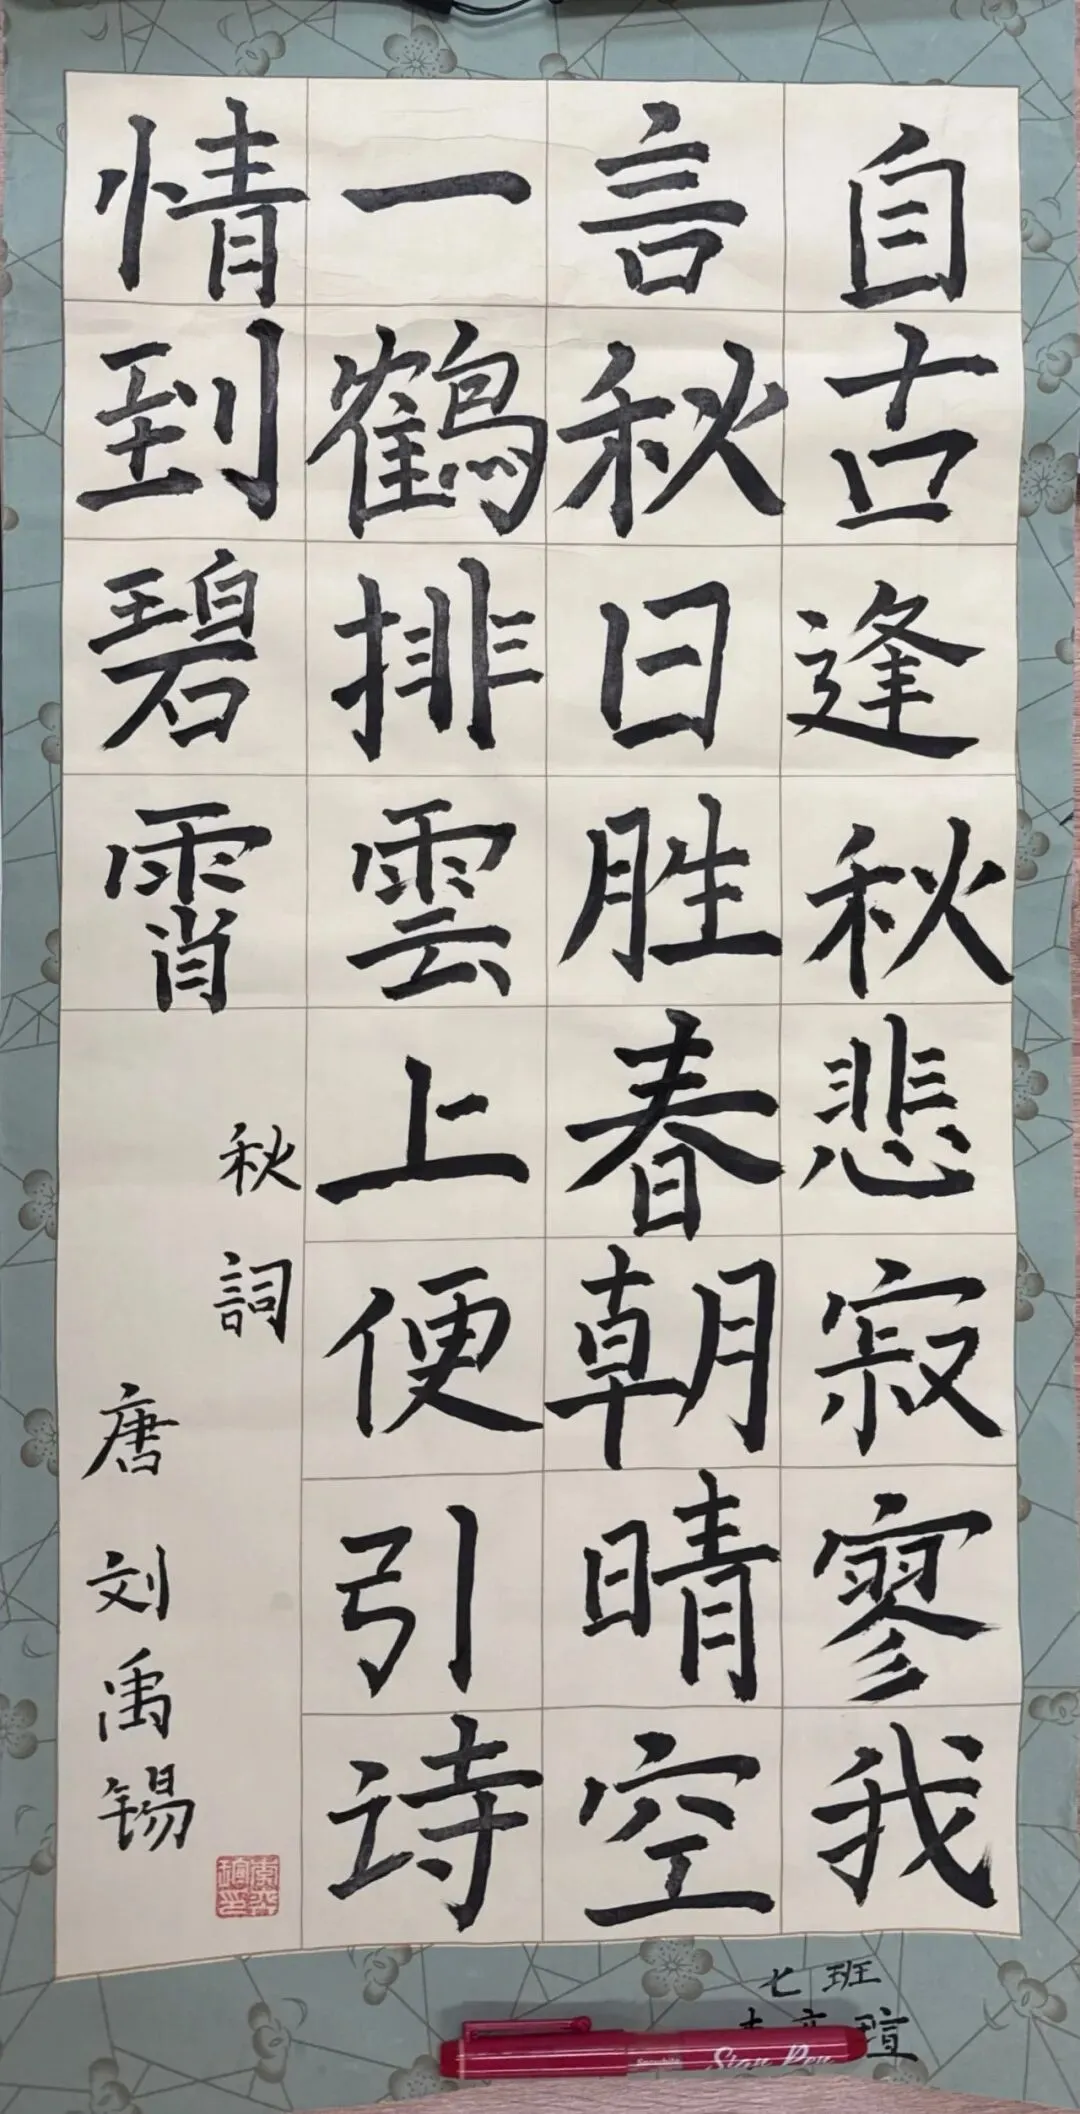 自古逢秋悲寂寥我
言秋日胜春朝晴空
一鶴排雲上便引诗
情到碧霄
秋詞
唐刘禹锡
七班
瑄
Sign Pen